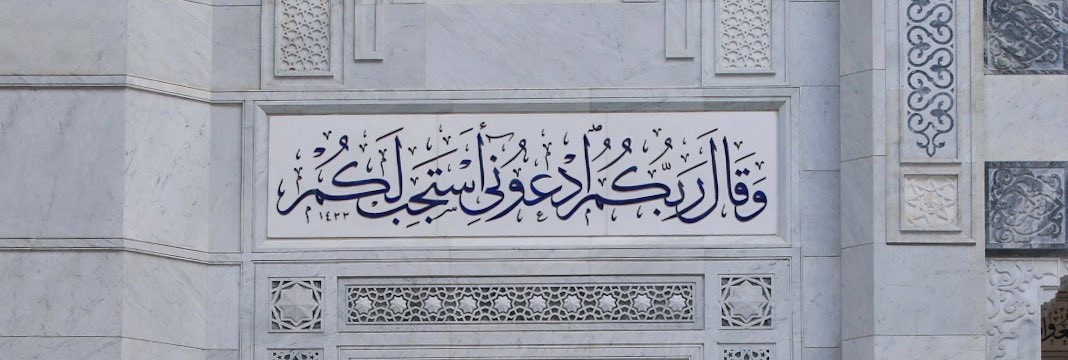 وَقَالَ رَبُّكُمُ ادْعُونِيٓ أَسْتَجِبْ لَكُمْ
١٤٣٣